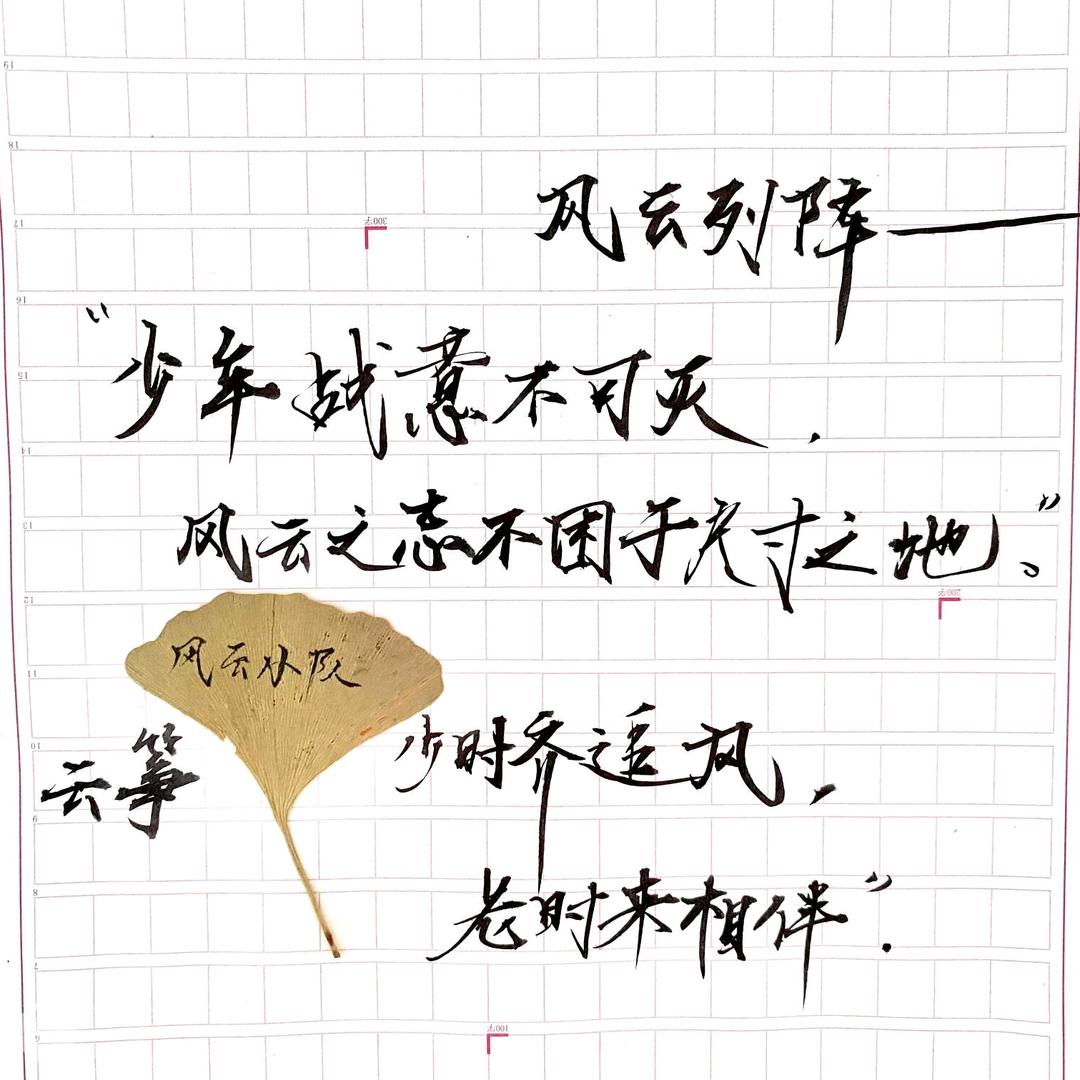 风云列阵——
“少年战意不可灭，
风云之志不困于尺寸之地。”
风云小队
云筝
少时齐追风，
老时来相伴”.
19
18
17
300字
16
15
14
13
12
200字
11
10
9
8
7
6
100字